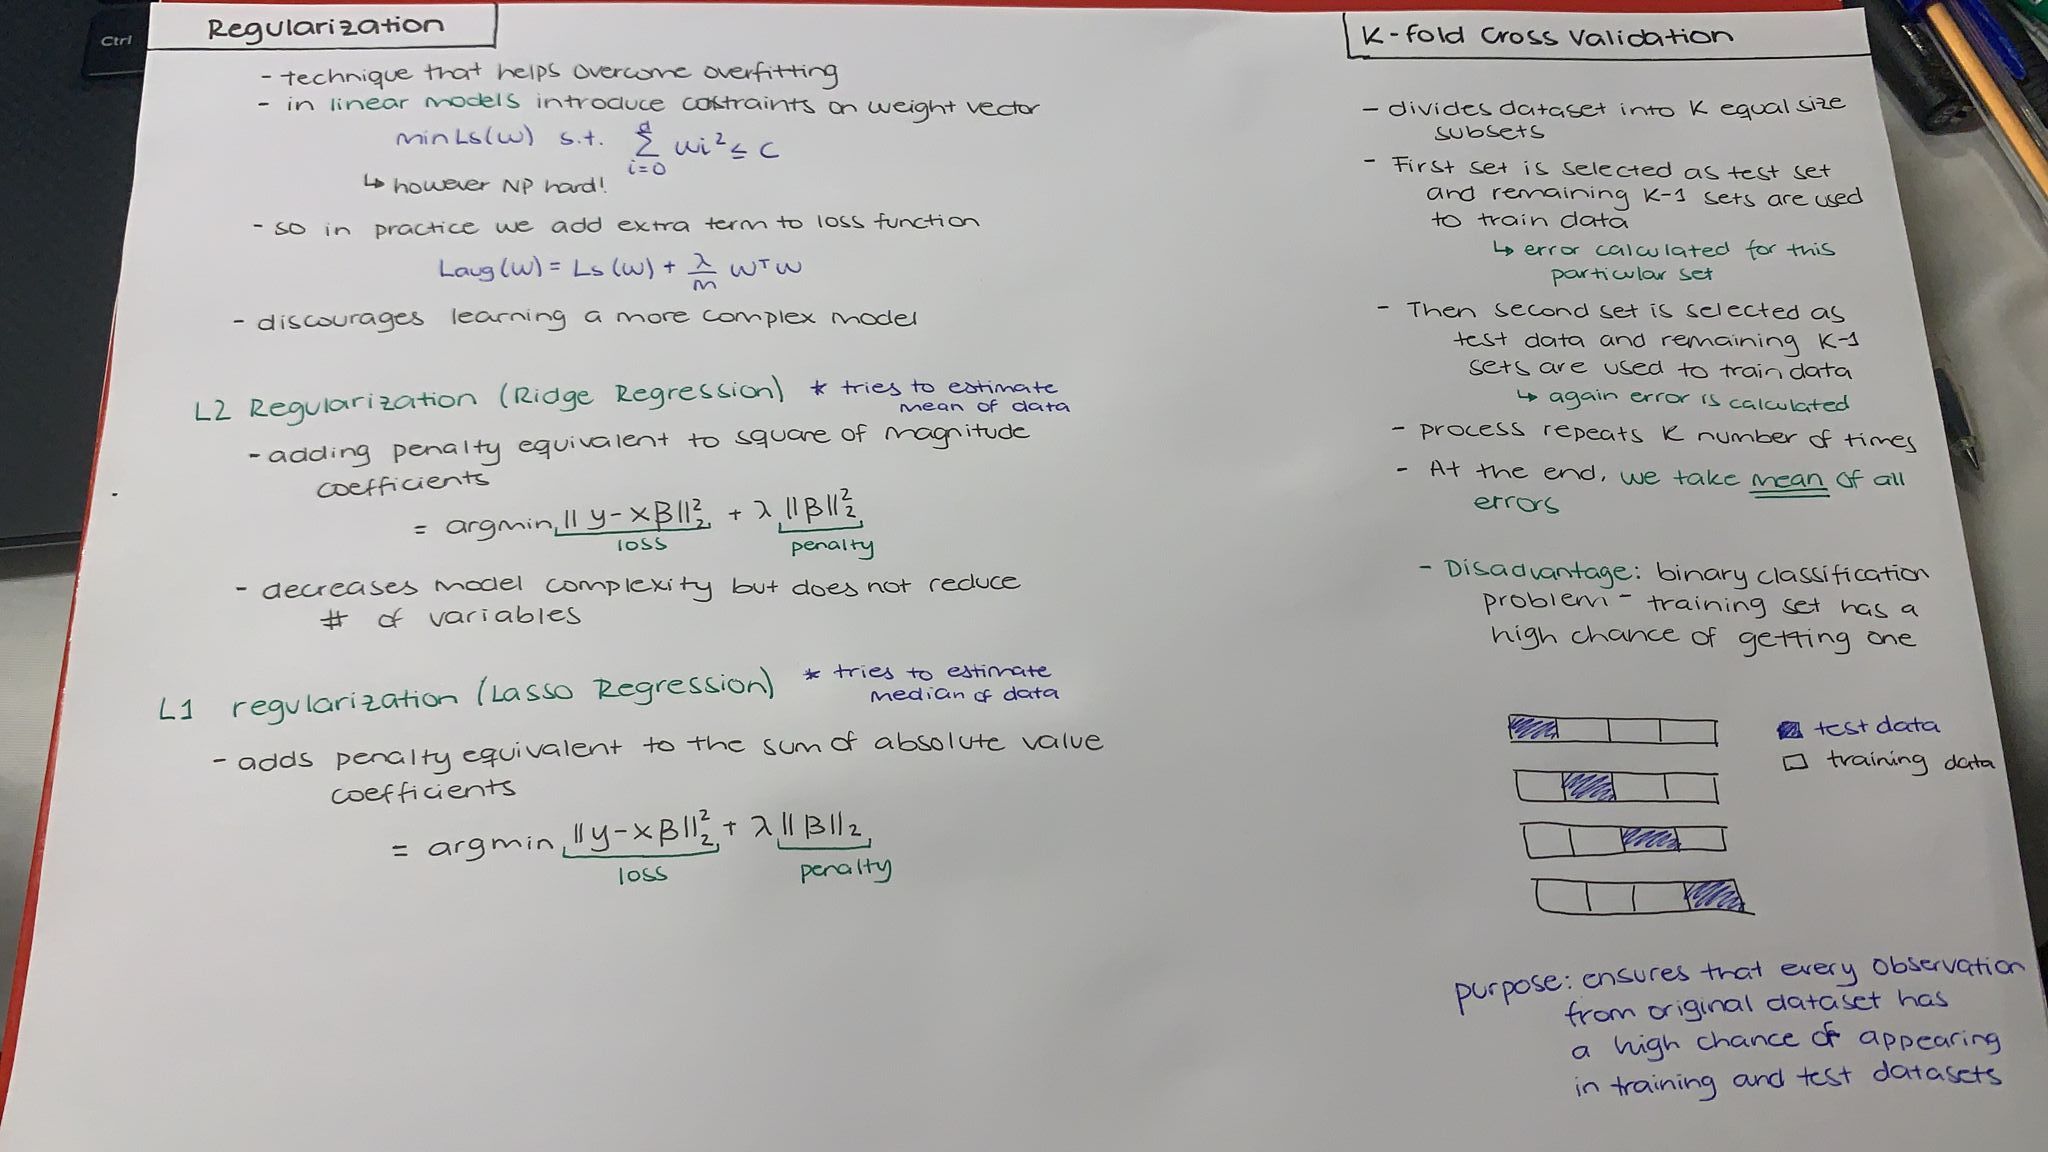 Ctrl
Regularization
- technique that helps overcome overfitting
- in linear models introduce constraints on weight vector
min Ls(w) s.t. d∑i=0 wi² ≤ C
↳ however NP hard!
- so in practice we add extra term to loss function
Laug(w) = Ls(w) + λ/m wᵀw
- discourages learning a more complex model
L2 Regularization (Ridge Regression) * tries to estimate
mean of data
- adding penalty equivalent to square of magnitude
coefficients
= argmin ||y-xβ||₂² + λ||β||₂²
loss penalty
- decreases model complexity but does not reduce
# of variables
L1 regularization (Lasso Regression) * tries to estimate
median of data
- adds penalty equivalent to the sum of absolute value
coefficients
= argmin ||y-xβ||₂² + λ||β||₂
loss penalty
K-fold Cross Validation
- divides dataset into K equal size
subsets
- First set is selected as test set
and remaining K-1 sets are used
to train data
↳ error calculated for this
particular set
- Then second set is selected as
test data and remaining K-1
sets are used to train data
↳ again error is calculated
- process repeats K number of times
- At the end, we take mean of all
errors
- Disadvantage: binary classification
problem - training set has a
high chance of getting one
test data
training data
purpose: ensures that every observation
from original dataset has
a high chance of appearing
in training and test datasets